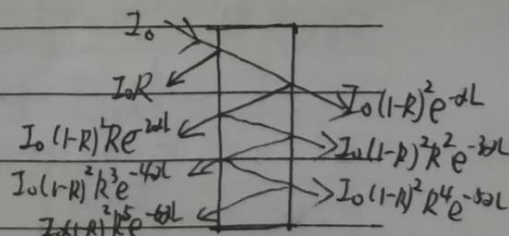 I₀
I₀R
I₀(1-R)²e^-αL
I₀(1-R)²Re^-2αL
I₀(1-R)²R²e^-3αL
I₀(1-R)²R³e^-4αL
I₀(1-R)²R⁴e^-5αL
I₀(1-R)²R⁵e^-6αL